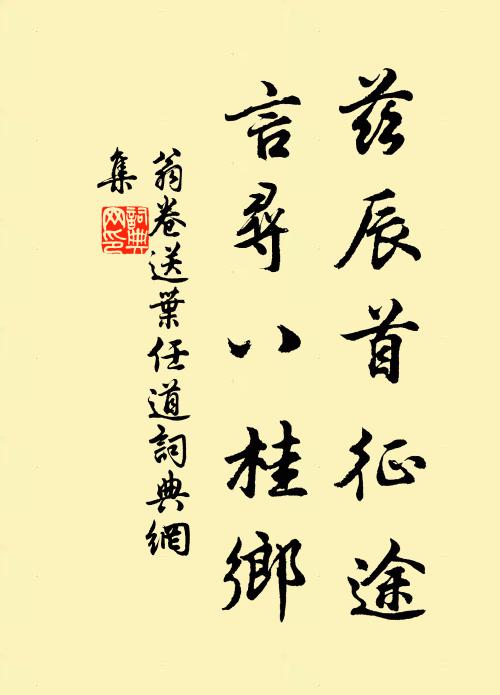 茲辰首征途
言尋八桂鄉
翁卷送葉任道詞典網
集
詞典网印